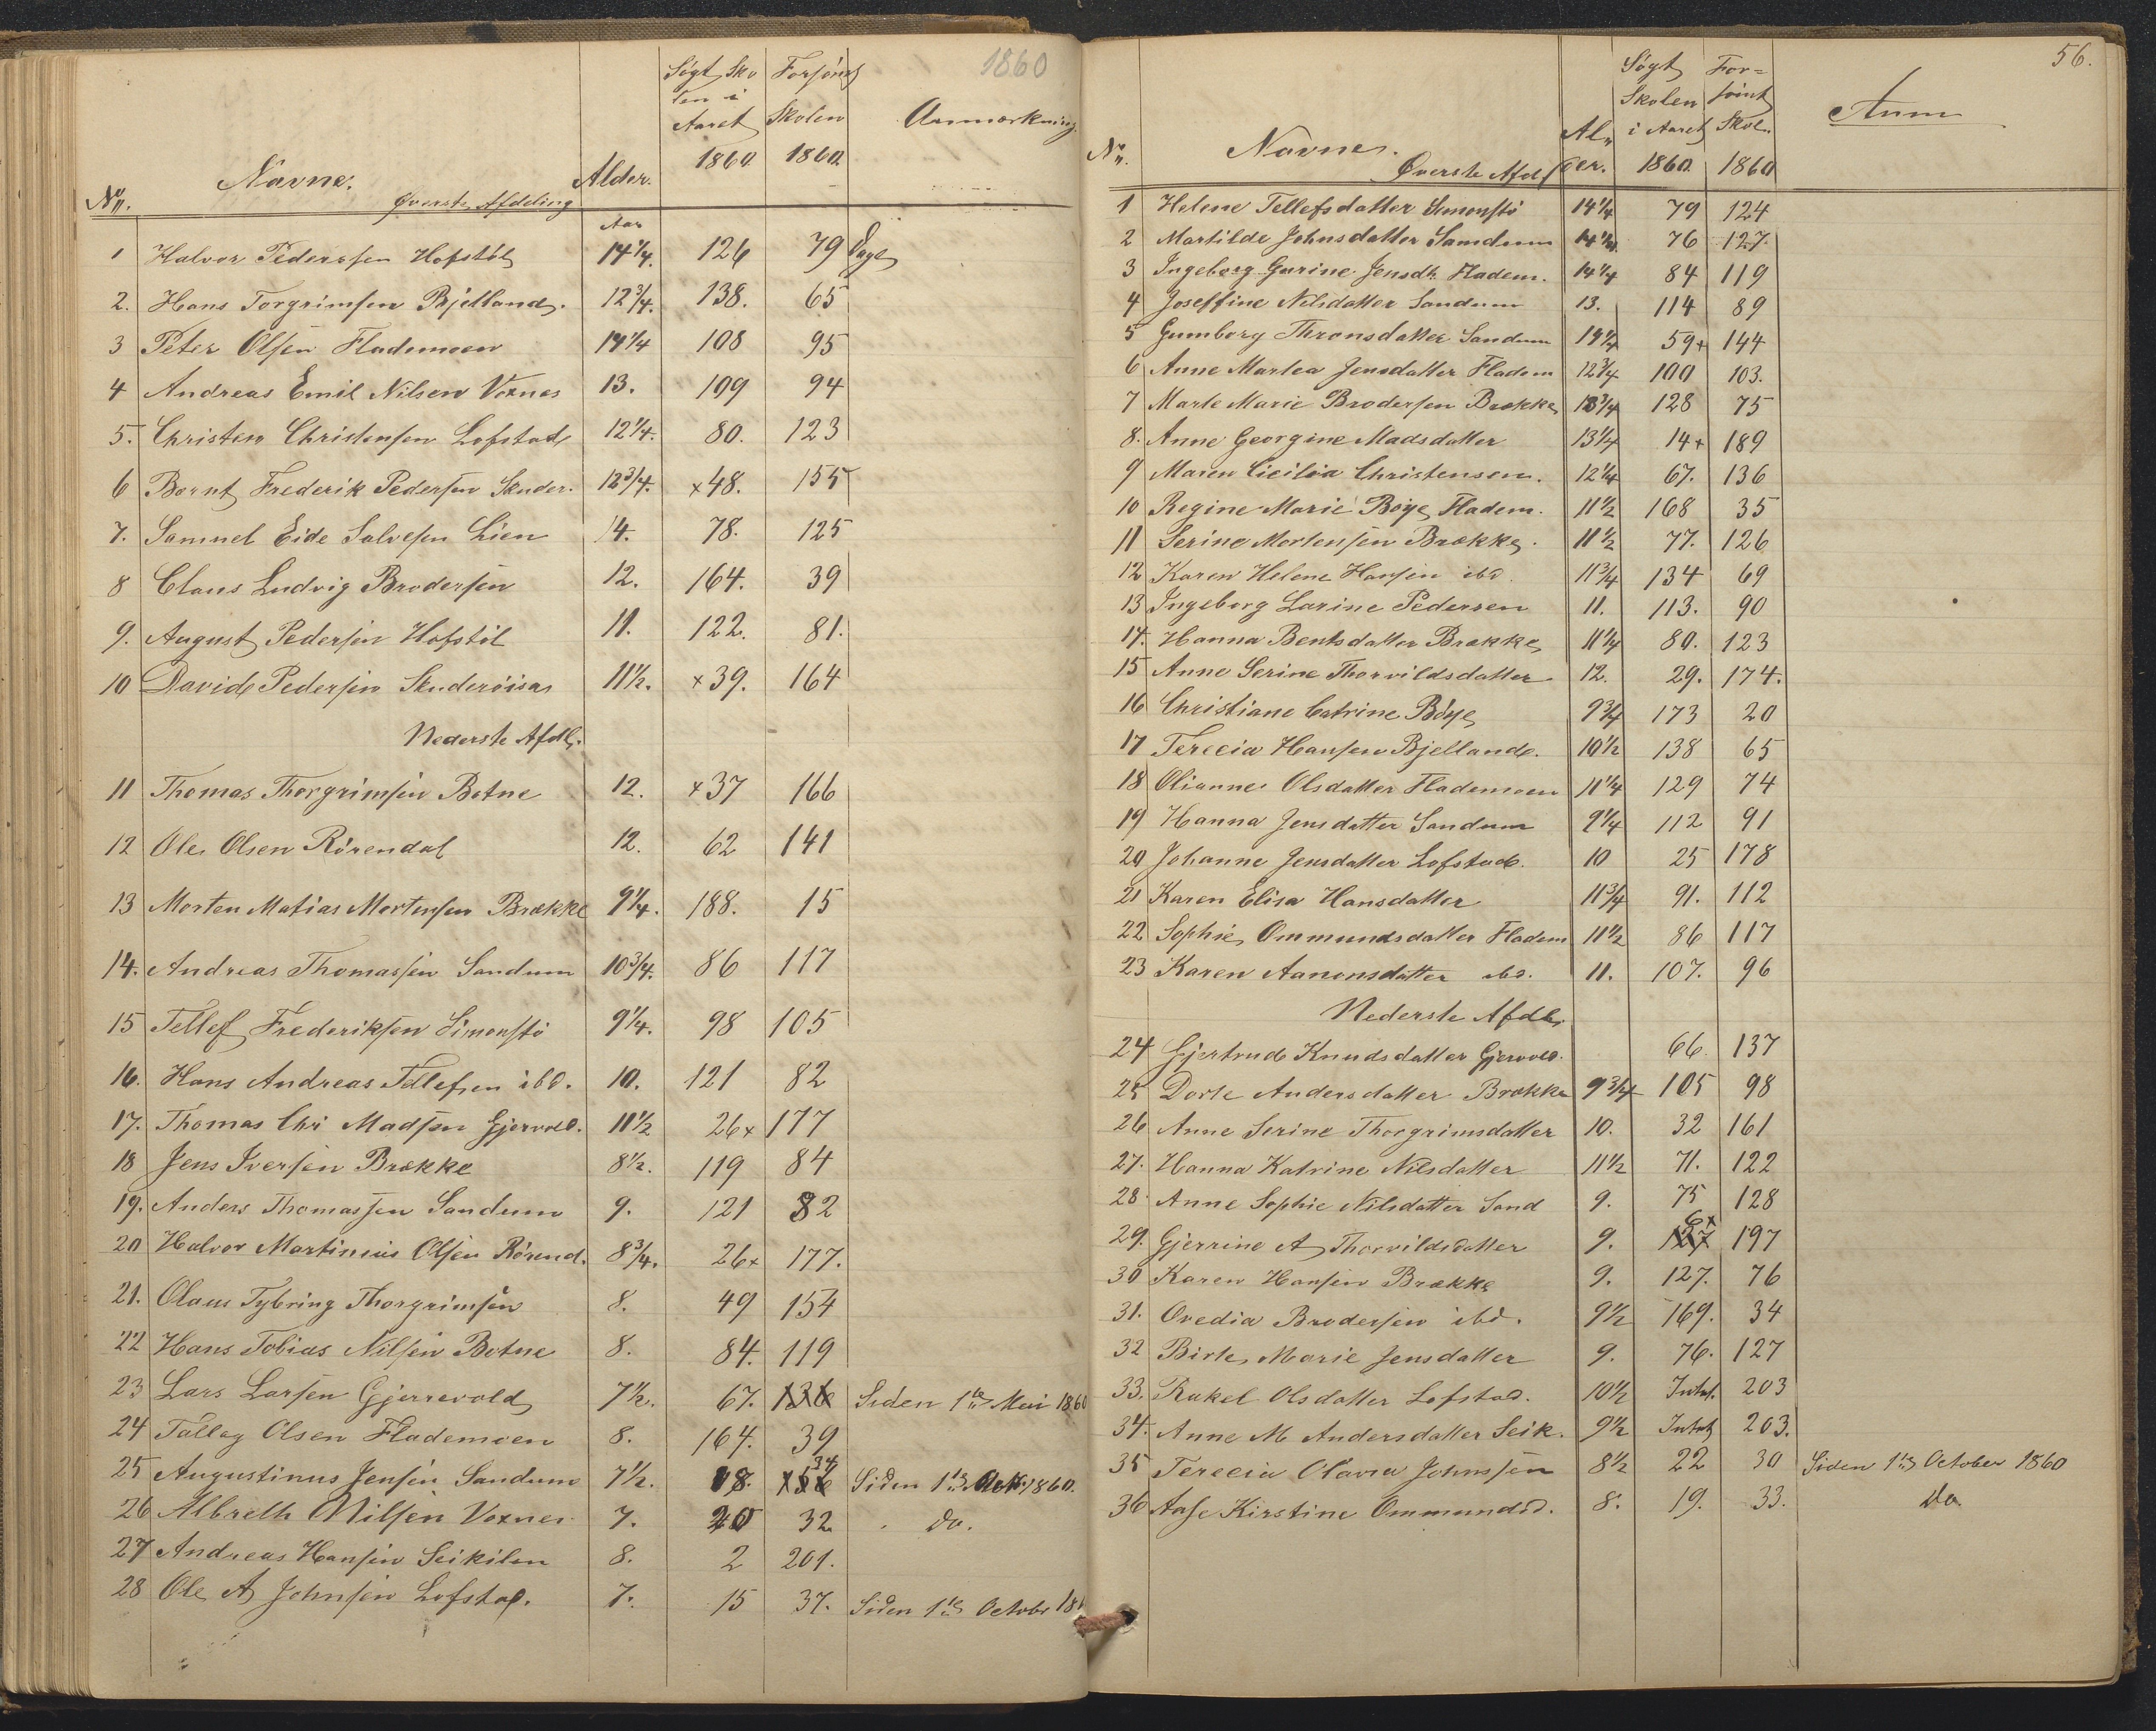 1860
Nº. Navne. Øverste Afdeling Alder. Søgt Skolen i Aaret 1860 Forsømt Skolen 1860. Anmærkning.
Aar
1 Halvor Pedersen Hofstøl 14 1/4. 126 79 Dage
2. Hans Torgrimsen Bjelland. 12 3/4. 138. 65
3 Peter Olsen Flademoen 14 1/4 108 95
4 Andreas Emil Nilsen Voxnes 13. 109 94
5. Christen Christensen Lofstad 12 1/4. 80. 123
6 Bernt Frederik Pedersen Skuder. 12 3/4. ×48. 155
7. Samuel Eide Salvesen Lien 14. 78. 125
8 Claus Ludvig Brodersen 12. 164. 39
9. August Pedersen Hofstøl 11. 122. 81.
10 David Pedersen Skuderøisas 11 1/2. ×39. 164
Nederste Afdl.
11 Thomas Thorgrimsen Botne 12. ×37 166
12 Ole Olsen Rørendal 12. 62 141
13 Morten Matias Mortensen Brække 9 1/4. 188. 15
14. Andreas Thomassen Sandum 10 3/4. 86 117
15 Tellef Frederiksen Simonstø 9 1/4. 98 105
16. Hans Andreas Tellefsen ibd. 10. 121 82
17. Thomas Chr Madsen Gjervold. 11 1/2 26× 177
18 Jens Iversen Brække 8 1/2. 119 84
19. Anders Thomassen Sandum 9. 121 82
20 Halvor Martinius Olsen Rørend. 8 3/4. 26× 177.
21. Olaus Tybring Thorgrimsen 8. 49 154
22 Hans Tobias Nilsen Botne 8. 84. 119
23 Lars Larsen Gjerrevold 7 1/2. 67. 136 Siden 1te Mai 1860
24 Tallag Olsen Flademoen 8. 164. 39
25 Augustinus Jensen Sandum 7 1/2. 18. 34 Siden 1te Octr. 1860.
26 Albreth Nilsen Voxnes 7. 20 32. do.
27 Andreas Hansen Seikilen 8. 2 201.
28 Ole A Johnsen Lofstad. 7. 15 37. Siden 1te Octobr
56.
Nº. Navne. Øverste Afdl Alder. Søgt Skolen i Aaret 1860. Forsømt Skolen 1860 Anm
1 Helene Tellefsdatter Simonstø 14 1/4 79 124
2 Martilde Johnsdatter Samdum 14 1/4. 76 127.
3 Ingeborg Gurine Jensdtr Fladem. 14 1/4 84 119
4 Joseffine Nilsdatter Sandum 13. 114 89
5 Gumborg Thronsdatter Sandum 14 1/4 59+ 144
6 Anne Martea Jensdatter Fladem 12 3/4 100 103.
7 Marte Marie Brodersen Brække 13 3/4 128 75
8. Anne Georgine Madsdatter 13 1/4 14+ 189
9 Maren Cicilia Christensen. 12 1/4 67. 136
10 Regine Marie Bøye Fladem. 11 1/2 168 35
11 Serine Mortensen Brække. 11 1/2 77. 126
12 Karen Helene Hansen ibd. 11 3/4 134 69
13 Ingeborg Larine Pedersen 11. 113. 90
14. Hanna Bentsdatter Brække 11 1/4 80. 123
15 Anne Serine Thorvildsdatter 12. 29. 174.
16 Christiane Catrine Bøye 9 3/4 173 20
17 Terecia Hansen Bjelland. 10 1/2 138 65
18 Olianne Olsdatter Flademoen 11 1/4 129 74
19 Hanna Jensdatter Sandum 9 1/4 112 91
20 Johanne Jensdatter Lofstad. 10 25 178
21 Karen Elisa Hansdatter 11 3/4 91. 112
22 Sophie Ommundsdatter Fladem 11 1/2 86 117
23 Karen Aanonsdatter ibd. 11. 107. 96
Nederste Afdl.
24 Gjertrud Knudsdatter Gjervold. 66. 137
25 Dorte Andersdatter Brække 9 3/4 105 98
26 Anne Serine Thorgrimsdatter 10. 32 161
27. Hanna Katrine Nilsdatter 11 1/2 71. 122
28 Anne Sophie Nilsdatter Sand 9. 75 128
29. Gjerrine A Thorvildsdatter 9. 127 6× 197
30 Karen Hansen Brække 9. 127. 76
31. Ovedia Brodersen ibd. 9 1/2 169. 34
32 Birte Marie Jensdatter 9. 76. 127
33. Rakel Olsdatter Lofstad. 10 1/2 Intet. 203
34. Anne M Andersdatter Seik. 9 1/2 Intet 203.
35 Terecia Olavia Johnsen 8 1/2 22 30 Siden 1te October 1860
36 Aase Kirstine Ommundsd. 8. 19. 33. do